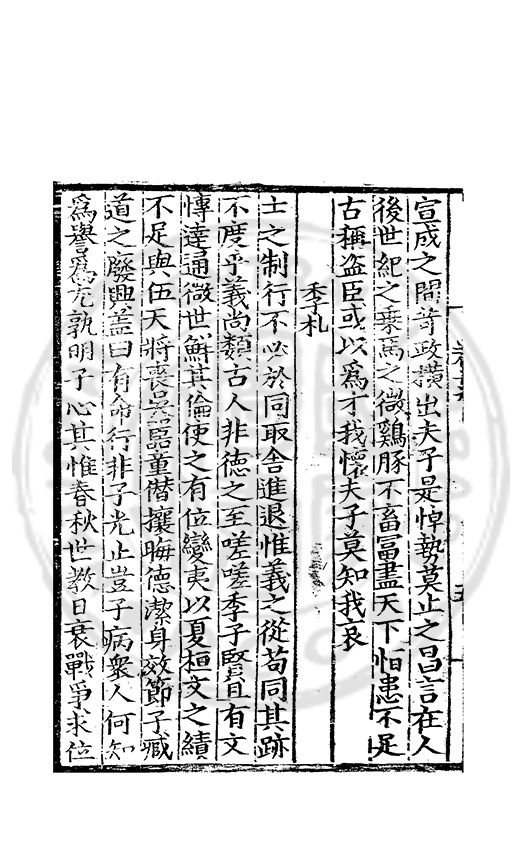 宣成之間苛政橫出夫子是悼勢莫止之昌言在人
後世紀之乗馬之微鷄豚不畜冨盡天下怕患不足
古稱盗臣或以爲才我懷夫子莫知我哀
季札
士之制行不必於同取舍進退惟義之從苟同其跡
不度乎義尚類古人非德之至嗟嗟季子賢且有文
愽達通微世鮮其倫使之有位變夷以夏桓文之績
不足與伍天將喪吳嚚童僣攘晦德潔身效節子臧
道之廢興蓋曰有命行非子光止豈子病衆人何知
爲譽爲尤孰明子心其惟春秋世教日衰戰爭求位